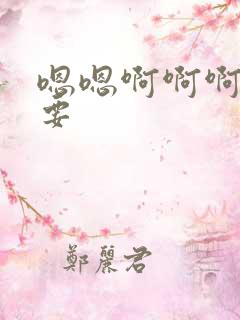 嗯嗯啊啊啊
要
鄭麗君